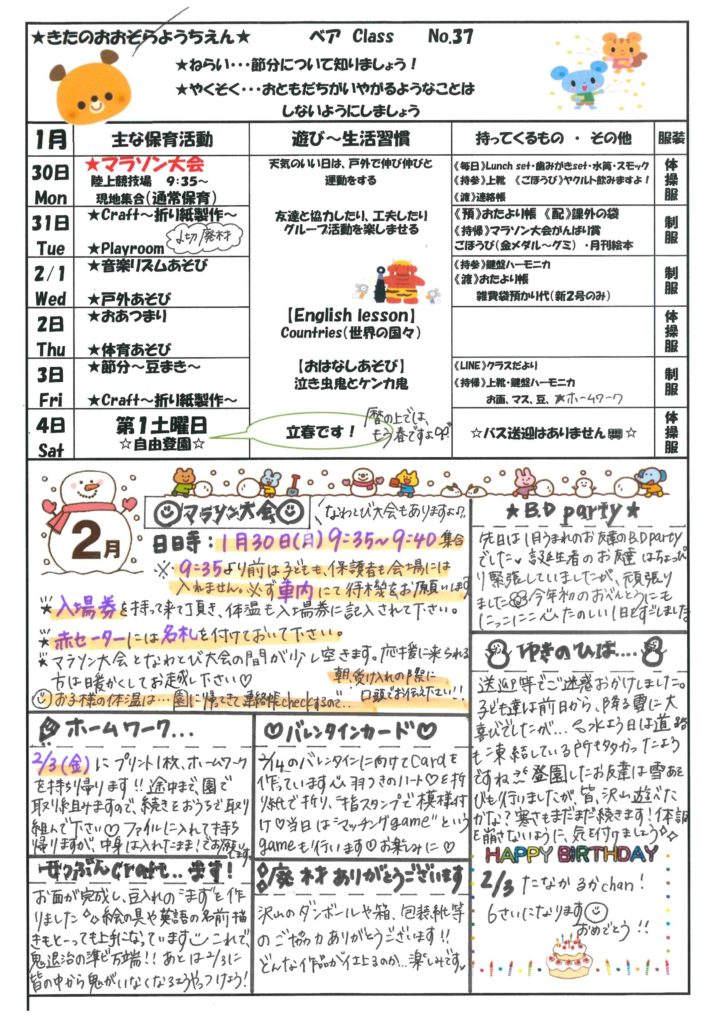 ★きたのおおぞらようちえん★ ベア Class No.37
★ねらい・・・節分について知りましょう！
★やくそく・・・おともだちがいやがるようなことは
しないようにしましょう
1月 主な保育活動 遊び～生活習慣 持ってくるもの ・ その他 服装
30日 Mon
★マラソン大会
陸上競技場 9:35～
現地集合(通常保育)
天気のいい日は、戸外で伸び伸びと
運動をする
《毎日》Lunch set・歯みがきset・水筒・スモック
《持参》上靴 《ごほうび》ヤクルト飲みますよ！
《渡》連絡帳
体操服
31日 Tue
★Craft～折り紙製作～
★Playroom
〆切 廃材
友達と協力したり、工夫したり
グループ活動を楽しませる
《預》おたより帳 《配》課外の袋
《持帰》マラソン大会がんばり賞
ごほうび(金メダル～グミ) ・月刊絵本
制服
2/1 Wed
★音楽リズムあそび
★戸外あそび
《持参》鍵盤ハーモニカ
《渡》おたより帳
雑費袋預かり代(新2号のみ)
制服
2日 Thu
★おあつまり
★体育あそび
【English lesson】
Countries(世界の国々)
体操服
3日 Fri
★節分～豆まき～
★Craft～折り紙製作～
【おはなしあそび】
泣き虫鬼とケンカ鬼
《LINE》クラスだより
《持帰》上靴・鍵盤ハーモニカ
お面、マス、豆、★ホームワーク
制服
4日 Sat
第１土曜日
☆自由登園☆
立春です！
暦の上では、
もう春ですよ
☆バス送迎はありません☆
体操服
2月
マラソン大会
なわとび大会もありますよ♪
日時：1月30日(月)9:35～9:40集合
※9:35より前は子ども、保護者も会場には
入れません。※必ず車内にて待機をお願いします
★入場券を持って来て頂き、体温も入場券に記入されて下さい。
★赤セーターには名札を付けておいて下さい。
★マラソン大会となわとび大会の間が少し空きます。応援に来られる
方は暖かくしてお越し下さい♡
お子様の体温は…園に帰ってきて連絡帳checkするので…
朝、受け入れの際に
口頭でお伝え下さい!!
★B.D party★
先日は1月うまれのお友達のB.D party
でした。誕生者のお友達はちょっぴ
り緊張していましたが、頑張り
ました 今年初のおべんとうにも
にっこにこ たのしい1日をすごしました
ゆきのひは….
送迎等でご迷惑おかけしました。
子ども達は前日から、降る雪に大
喜びでしたが…水よう日は道路
も凍結している所も多かったよう
ですね 登園したお友達は雪あそ
びも行いましたが、皆、沢山遊べた
かな？寒さもまだまだ続きます！体調
を崩さないように、気を付けましょう
ホームワーク...
2/3(金)にプリント1枚、ホームワーク
を持ち帰ります!!途中まで、園で
取り組みますので、続きをおうちで取り
組んで下さい♡ ファイルに入れて持ち
帰りますが、中身は入れたまま！でお願いします
♡バレンタインカード♡
2/14のバレンタインに向けてCardを
作っています 羽つきのハート♡を折り
紙で折り、"指スタンプ"で模様付
け♡当日は"マッチングgame"という
gameも行います♡お楽しみに♡
せつぶんCraft...完成！
お面が完成し、豆入れの"ます"を作
りました 絵の具や英語の名前描
きもと～っても上手になっています これで、
鬼退治の準び万端!! あとは2/3に
皆の中から鬼がいなくなるようやっつけよう！
廃材ありがとうございます
沢山のダンボールや箱、包装紙等
のご協力ありがとうございます!!
どんな作品が仕上るのか…楽しみです
HAPPY BIRTHDAY
2/3 たなか るかchan！
6さいになります
おめでとう!!